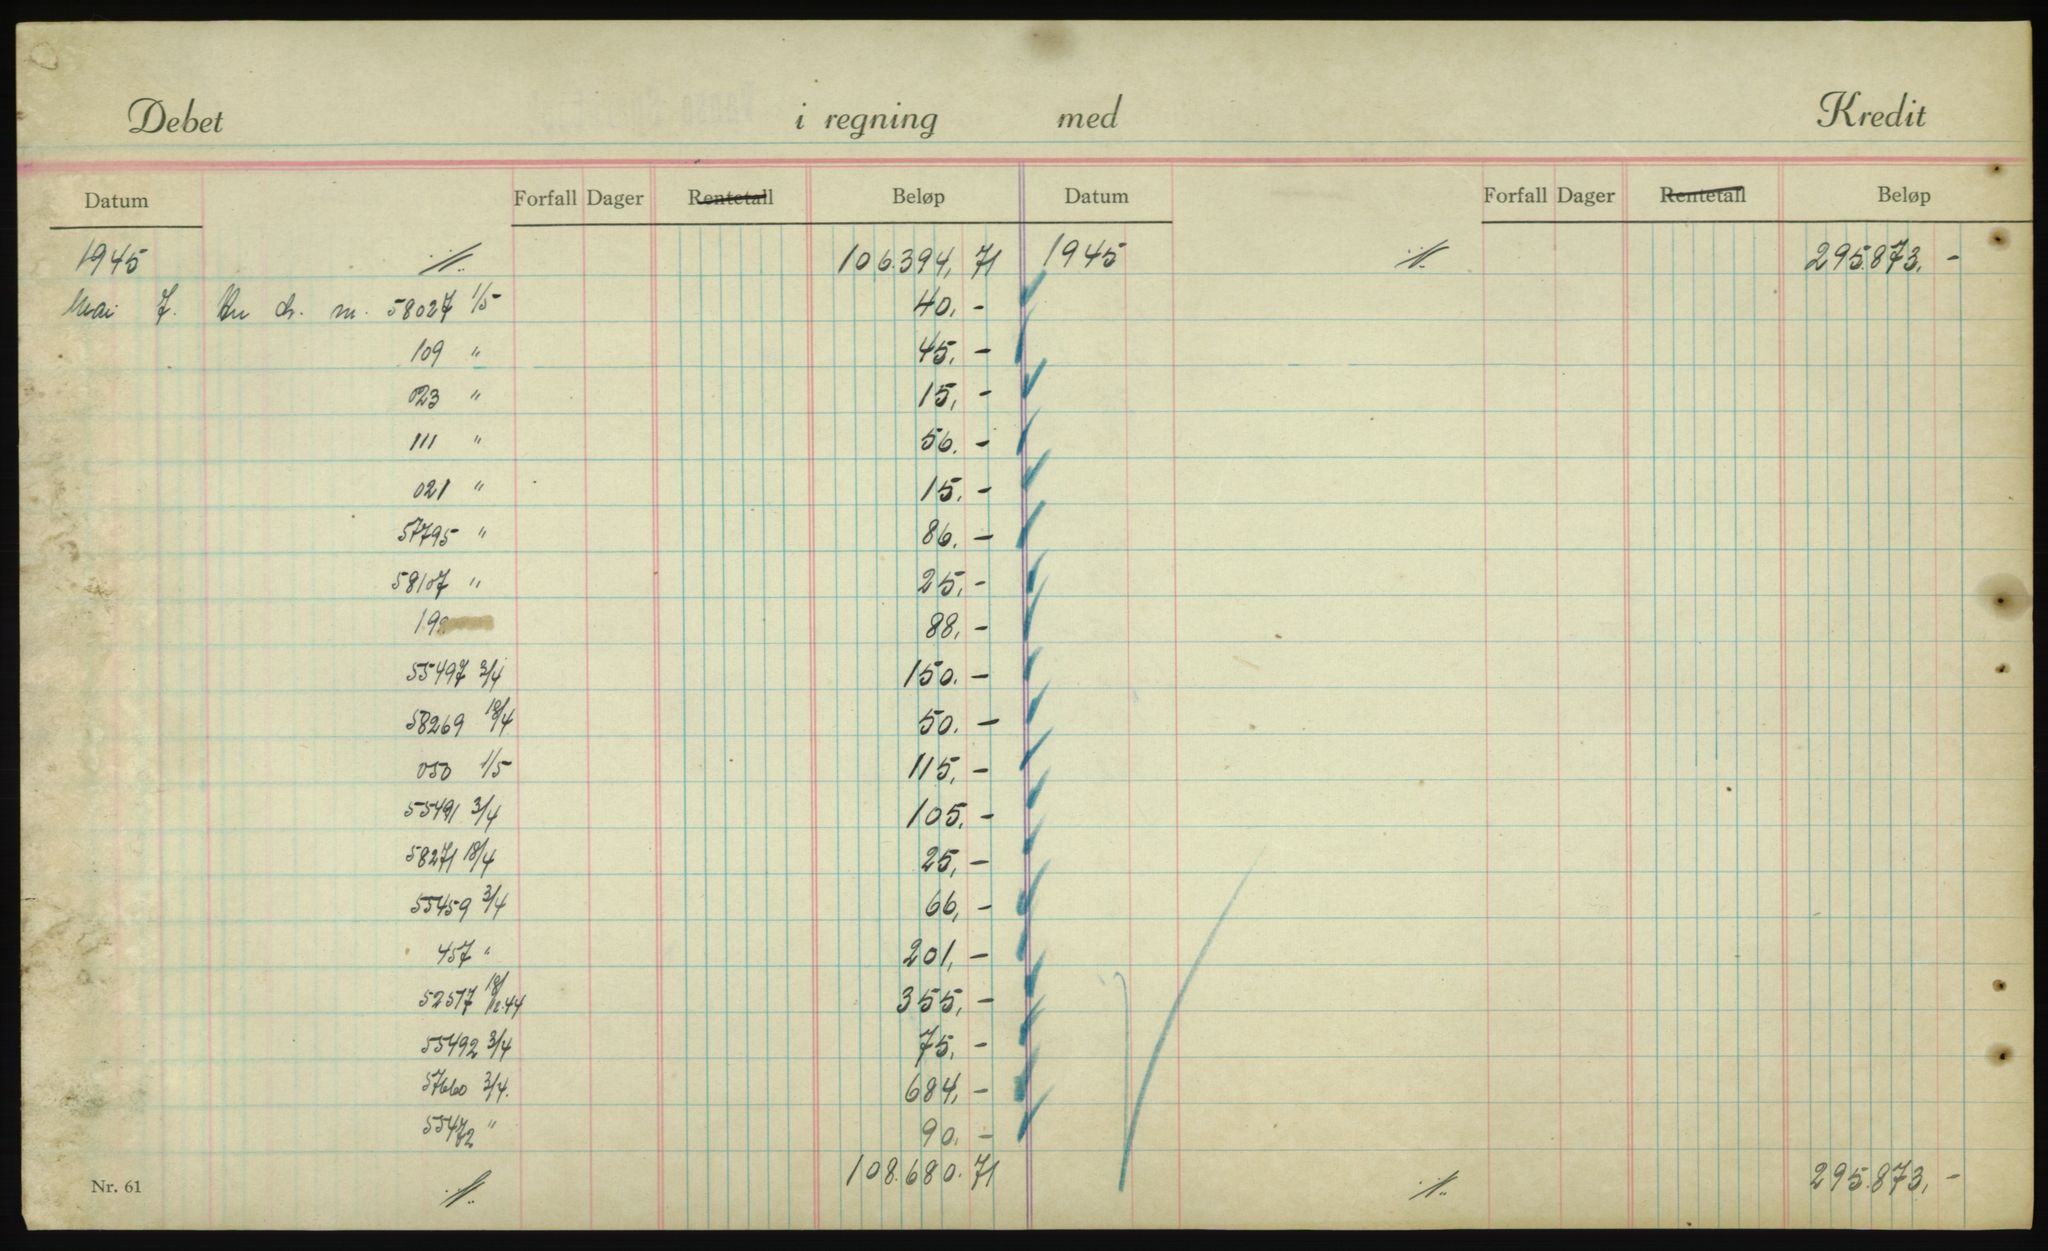 Debet i regning med Kredit
Datum Forfall Dager Rentetall Beløp Datum Forfall Dager Rentetall Beløp
1945 ·//· 106.394,71 1945 ·//· 295.873,-
Mai 7. An ch. m. 58027 1/5 40,-
109 " 45,-
023 " 15,-
111 " 56.-
021 " 15.-
57795 " 86.-
58107 " 25,-
19 88,-
55497 3/4 150.-
58269 18/4 50.-
050 1/5 115,-
55491 3/4 105.-
58271 18/4 25,-
55459 3/4 66,-
457 " 201,-
52517 18/12.44 355,-
55492 3/4 75,-
57660 3/4. 684,-
55472 " 90.-
Nr. 61 ·//· 108.680.71 ·//· 295.873,-